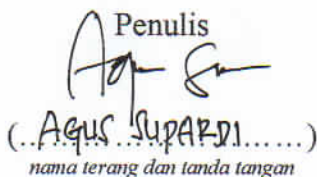 Penulis
(..AGUS SUPARDI......)
nama terang dan tanda tangan